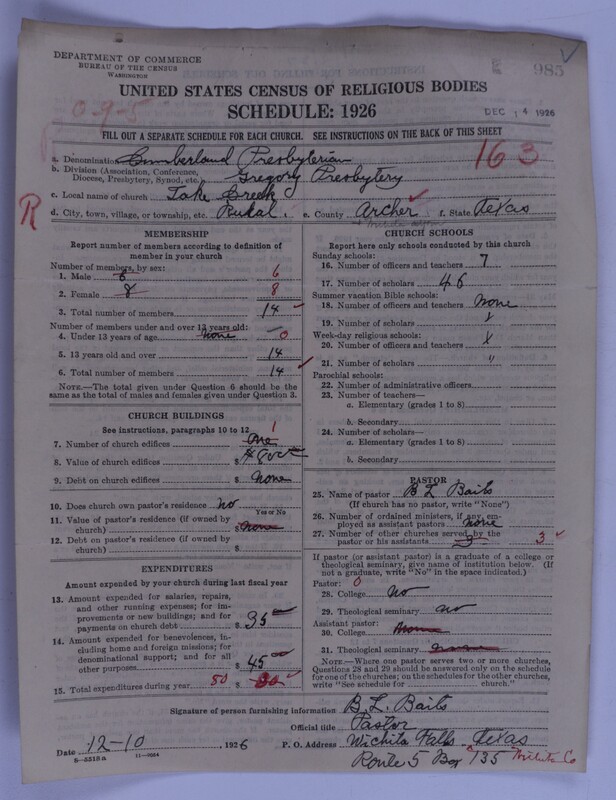 DEPARTMENT OF COMMERCE
BUREAU OF THE CENSUS
WASHINGTON
985
UNITED STATES CENSUS OF RELIGIOUS BODIES
SCHEDULE: 1926
0-9-5
DEC 14 1926
FILL OUT A SEPARATE SCHEDULE FOR EACH CHURCH. SEE INSTRUCTIONS ON THE BACK OF THIS SHEET
a. Denomination Cumberland Presbyterian
163
b. Division (Association, Conference, Diocese, Presbytery, Synod, etc.) Gregory Presbytery
c. Local name of church Lake Creek
R
d. City, town, village, or township, etc. Rural. e. County Archer f. State Texas
MEMBERSHIP
Report number of members according to definition of member in your church
Number of members, by sex:
1. Male 6 6
2. Female 8 8
3. Total number of members 14
Number of members under and over 13 years old:
4. Under 13 years of age none 0
5. 13 years old and over 14
6. Total number of members 14
NOTE.—The total given under Question 6 should be the same as the total of males and females given under Question 3.
CHURCH BUILDINGS
See instructions, paragraphs 10 to 12
7. Number of church edifices One 1
8. Value of church edifices $ 800
9. Debt on church edifices $ none
10. Does church own pastor's residence No
Yes or No
11. Value of pastor's residence (if owned by church) $ none
12. Debt on pastor's residence (if owned by church) $
EXPENDITURES
Amount expended by your church during last fiscal year
13. Amount expended for salaries, repairs, and other running expenses; for improvements or new buildings; and for payments on church debt $ 35
14. Amount expended for benevolences, including home and foreign missions; for denominational support; and for all other purposes $ 45.00
15. Total expenditures during year 80 $ 80
CHURCH SCHOOLS
Report here only schools conducted by this church
Sunday schools:
16. Number of officers and teachers 7
17. Number of scholars 46
Summer vacation Bible schools:
18. Number of officers and teachers none
19. Number of scholars
Week-day religious schools:
20. Number of officers and teachers
21. Number of scholars "
Parochial schools:
22. Number of administrative officers
23. Number of teachers—
a. Elementary (grades 1 to 8)
b. Secondary
24. Number of scholars—
a. Elementary (grades 1 to 8)
b. Secondary
PASTOR
25. Name of pastor B L Baits
(If church has no pastor, write "None")
26. Number of ordained ministers, if any, employed as assistant pastors none
27. Number of other churches served by the pastor or his assistants 3 3
If pastor (or assistant pastor) is a graduate of a college or theological seminary, give name of institution below. (If not a graduate, write "No" in the space indicated.)
Pastor: 0
28. College No
29. Theological seminary no
Assistant pastor:
30. College None
31. Theological seminary none
NOTE.—Where one pastor serves two or more churches, Questions 28 and 29 should be answered only on the schedule for one of the churches; on the schedules for the other churches, write "See schedule for church."
Signature of person furnishing information B. L. Baits
Official title Pastor
Date 12-10 1926 P. O. Address Wichita Falls Texas
Route 5 Box 135 Wichita Co
8—5318a 11—9064